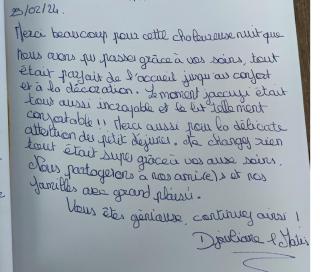 23/02/24.
Merci beaucoup pour cette chaleureuse nuit que
nous avons pu passer grâce à vos soins, tout
était parfait de l'accueil jusqu'au confort
et à la décoration. Le moment jaccuzi était
tout aussi incroyable et le lit tellement
confortable !! Merci aussi pour la délicate
attention du petit déjeuner. Ne changez rien
tout était super grâce à vos soins.
Nous partagerons à nos ami(e)s et nos
familles avec grand plaisir.
Vous êtes géniause, continuez ainsi !